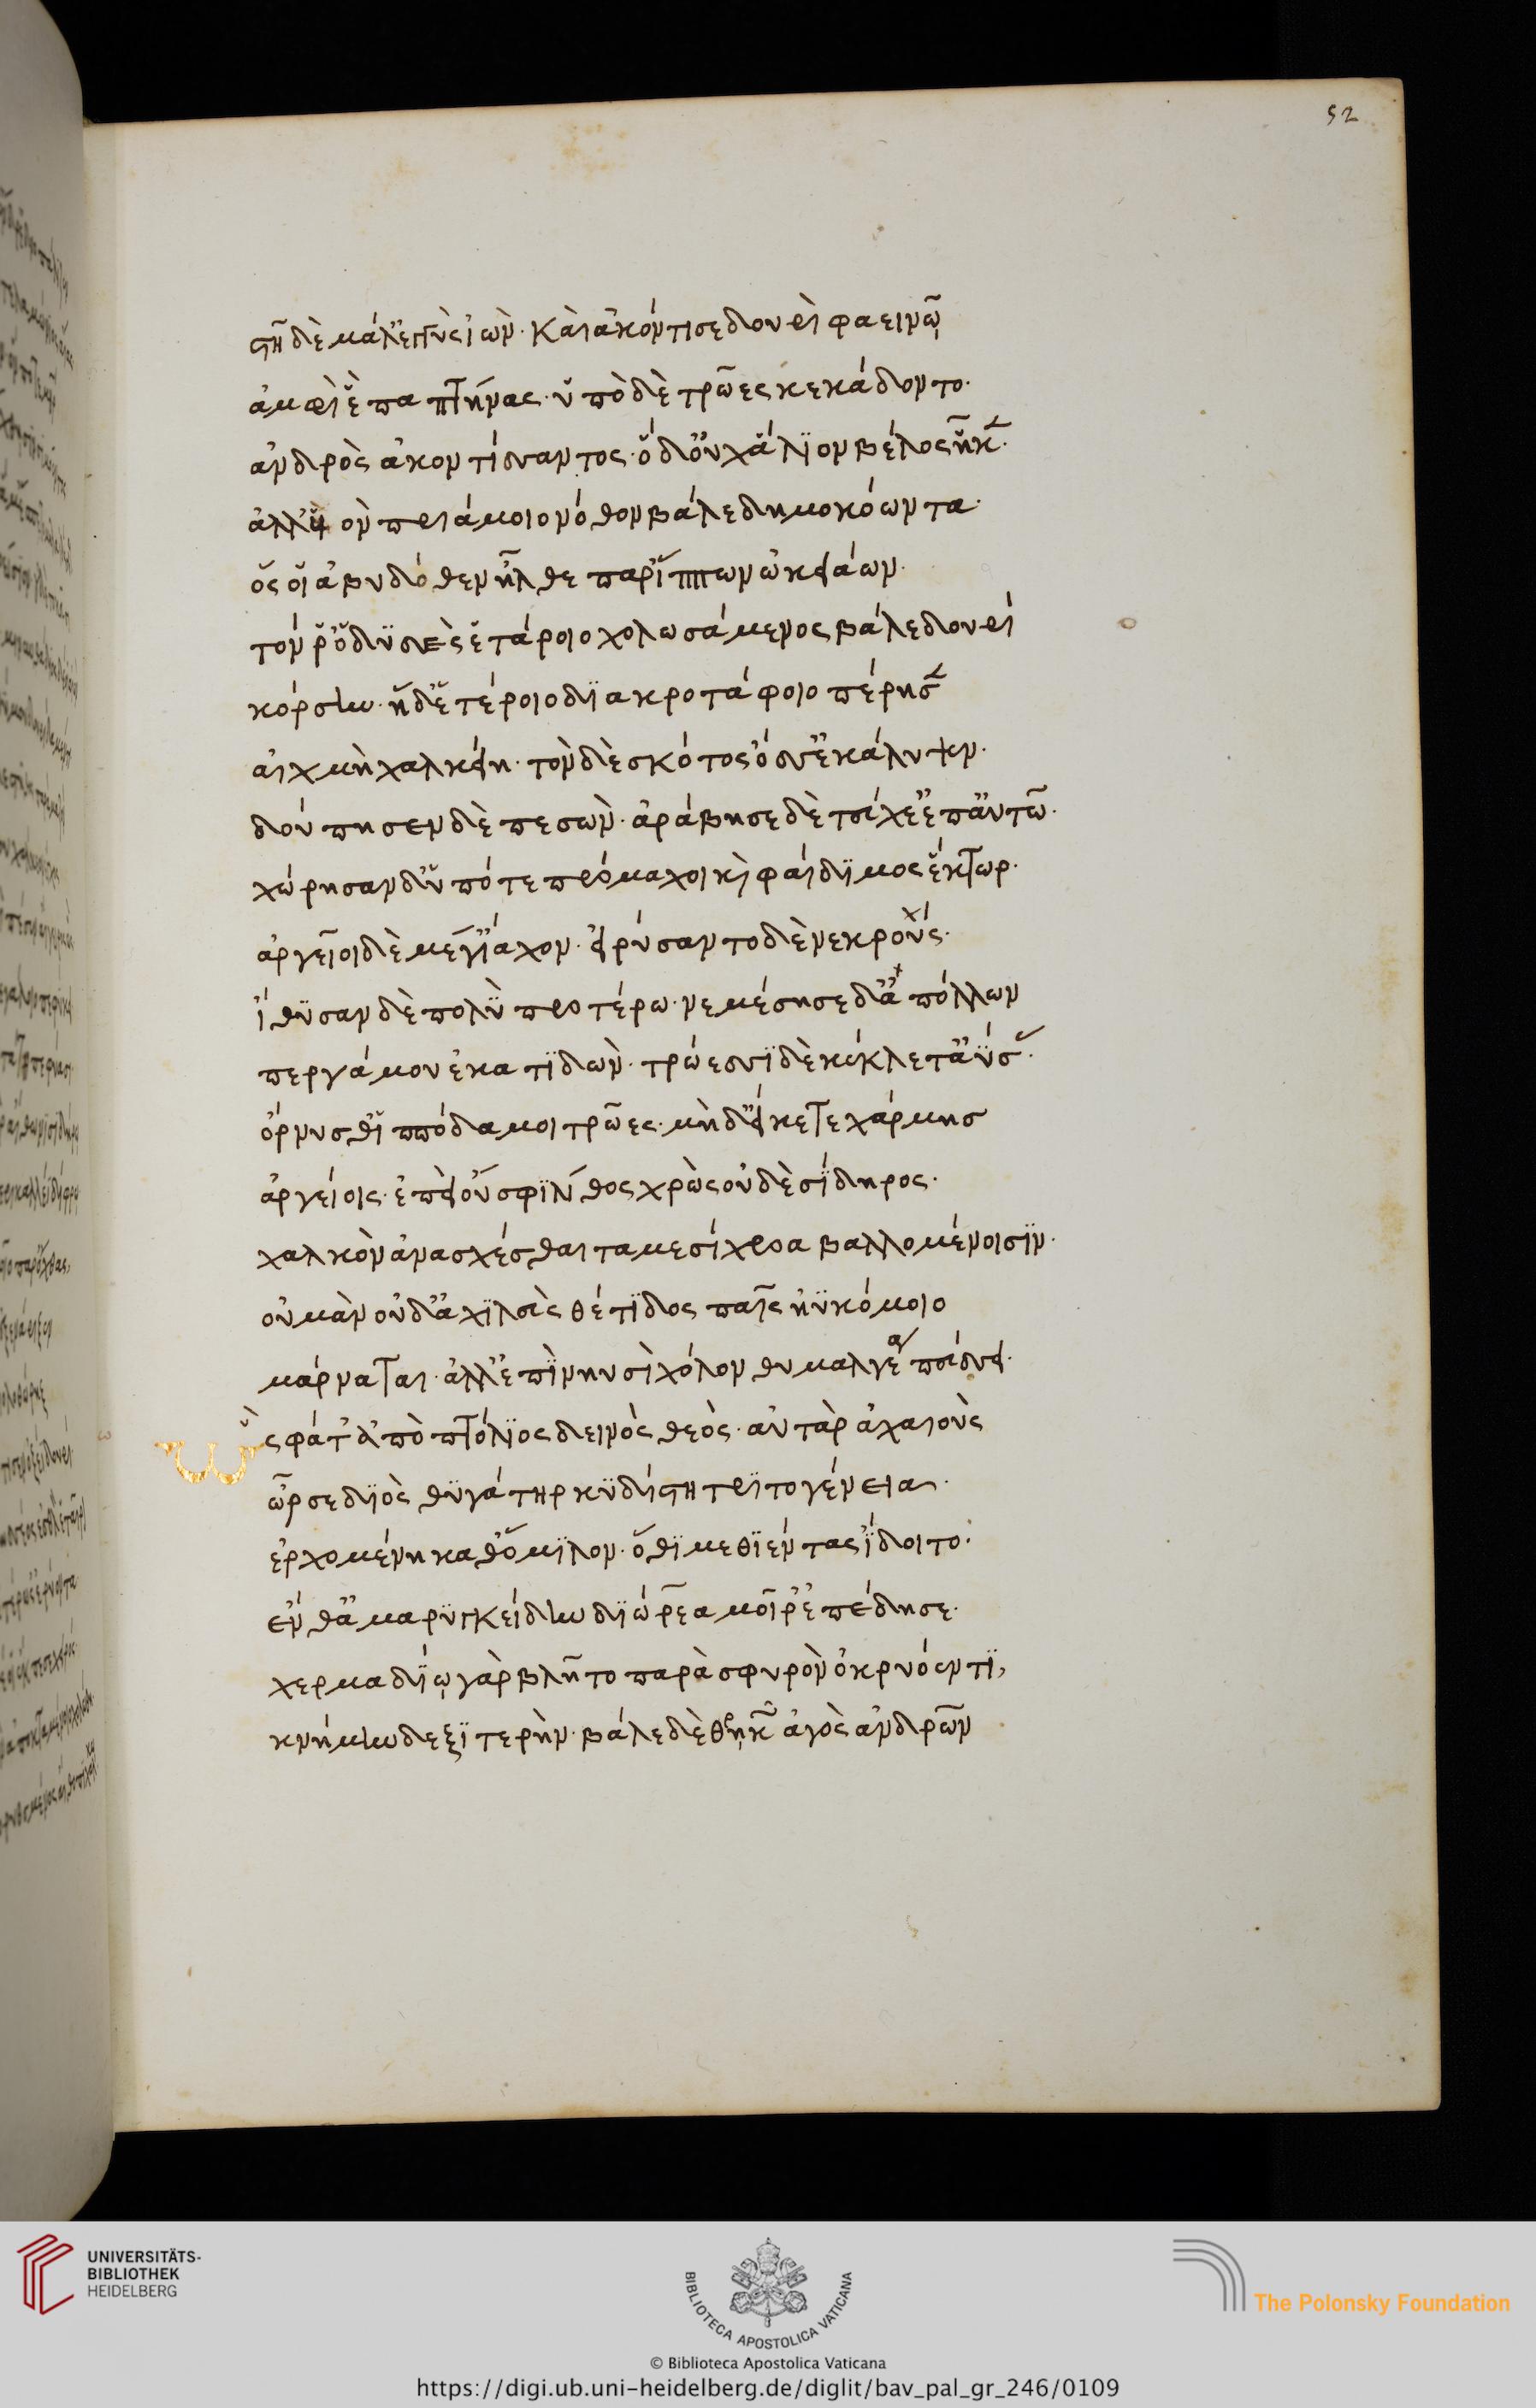 52
στῆ δὲ μάλ' ἐγγὺς ἰὼν· καὶ ἀκόντισε δουρὶ φαεινῷ
ἀμφὶ ἓ παπτήνας· ὑπὸ δὲ τρῶες κεκάδοντο·
ἀνδρὸς ἀκοντίσσαντος· ὁ δ' οὐχ ἅλιον βέλος ἧκεν·
ἀλλ' υἱὸν πριάμοιο νόθον βάλε δημοκόωντα·
ὅς οἱ ἀβυδόθεν ἦλθε παρ' ἵππων ὠκειάων·
τόν ῥ' ὀδυσεὺς ἑτάροιο χολωσάμενος βάλε δουρὶ
κόρσην· ἡ δ' ἑτέροιο διὰ κροτάφοιο πέρησεν
αἰχμὴ χαλκείη· τὸν δὲ σκότος ὄσσ' ἐκάλυψεν·
δούπησεν δὲ πεσὼν· ἀράβησε δὲ τεύχε' ἐπ' αὐτῶ·
χώρησαν δ' ὑπό τε πρόμαχοι καὶ φαίδιμος ἕκτωρ·
ἀργεῖοι δὲ μέγ' ἴαχον· εἰρύσαντο δὲ νεκροὺς·
ἴθυσαν δὲ πολὺ προτέρω· νεμέσησε δ' ἀπόλλων
περγάμου ἐκκατιδὼν· τρώεσσι δὲ κέκλετ' ἀΰσας·
ὄρνυσθ' ἱππόδαμοι τρῶες· μὴ δ' εἴκετε χάρμης
ἀργείοις· ἐπεὶ οὔ σφι λίθος χρὼς οὐδὲ σίδηρος·
χαλκὸν ἀνασχέσθαι ταμεσίχροα βαλλομένοισιν·
οὐ μὰν οὐδ' ἀχιλεὺς θέτιδος παῖς ἠϋκόμοιο
μάρναται· ἀλλ' ἐπὶ νηυσὶ χόλον θυμαλγέα πέσσει·
ὣς φάτ' ἀπὸ πτόλιος δεινὸς θεὸς· αὐτὰρ ἀχαιοὺς
ὦρσε διὸς θυγάτηρ κυδίστη τριτογένεια·
ἐρχομένη καθ' ὅμιλον· ὅθι μεθιέντας ἴδοιτο·
ἔνθ' ἀμαρυγκείδην διώρεα μοῖρ' ἐπέδησε·
χερμαδίῳ γὰρ βλῆτο παρὰ σφυρὸν ὀκρυόεντι,
κνήμην δεξιτερὴν· βάλε δὲ θρηκῶν ἀγὸς ἀνδρῶν
UNIVERSITÄTS-
BIBLIOTHEK
HEIDELBERG
BIBLIOTECA APOSTOLICA VATICANA
The Polonsky Foundation
© Biblioteca Apostolica Vaticana
https://digi.ub.uni-heidelberg.de/diglit/bav_pal_gr_246/0109